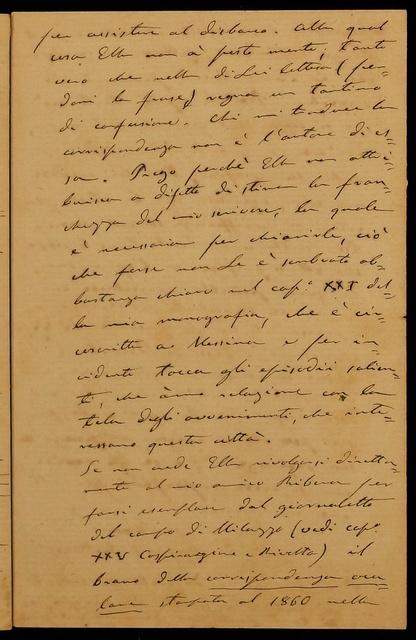 per assistere al disbarco. Alla qual
cosa Ella non à posto mente; tanto
vero che nella di Lei lettera (per-
doni la frase) regna un tantino
di confusione. Chi mi traduce la
corrispondenza non è l'autore di es-
sa. Prego perchè Ella non attri-
buisca a difetto di stima la fran-
chezza del mio scrivere, la quale
è necessaria per chiarirle, ciò
che forse non Le è sembrato ab-
bastanza chiaro nel cap.º XXI del-
la mia monografia, che è cir-
coscritta a Messina e per in-
cidente tocca gli episodii salien-
ti, che ànno relazione con la
tela degli avvenimenti, che inte-
ressano questa città.
Se non crede Ella rivolgersi diretta-
mente al mio amico Ribera per
farsi esemplare dal giornaletto
del campo di Milazzo (vedi cap.º
XXV Cospirazione e Rivolta) il
brano della corrispondenza ocu-
lare stampata al 1860 nella